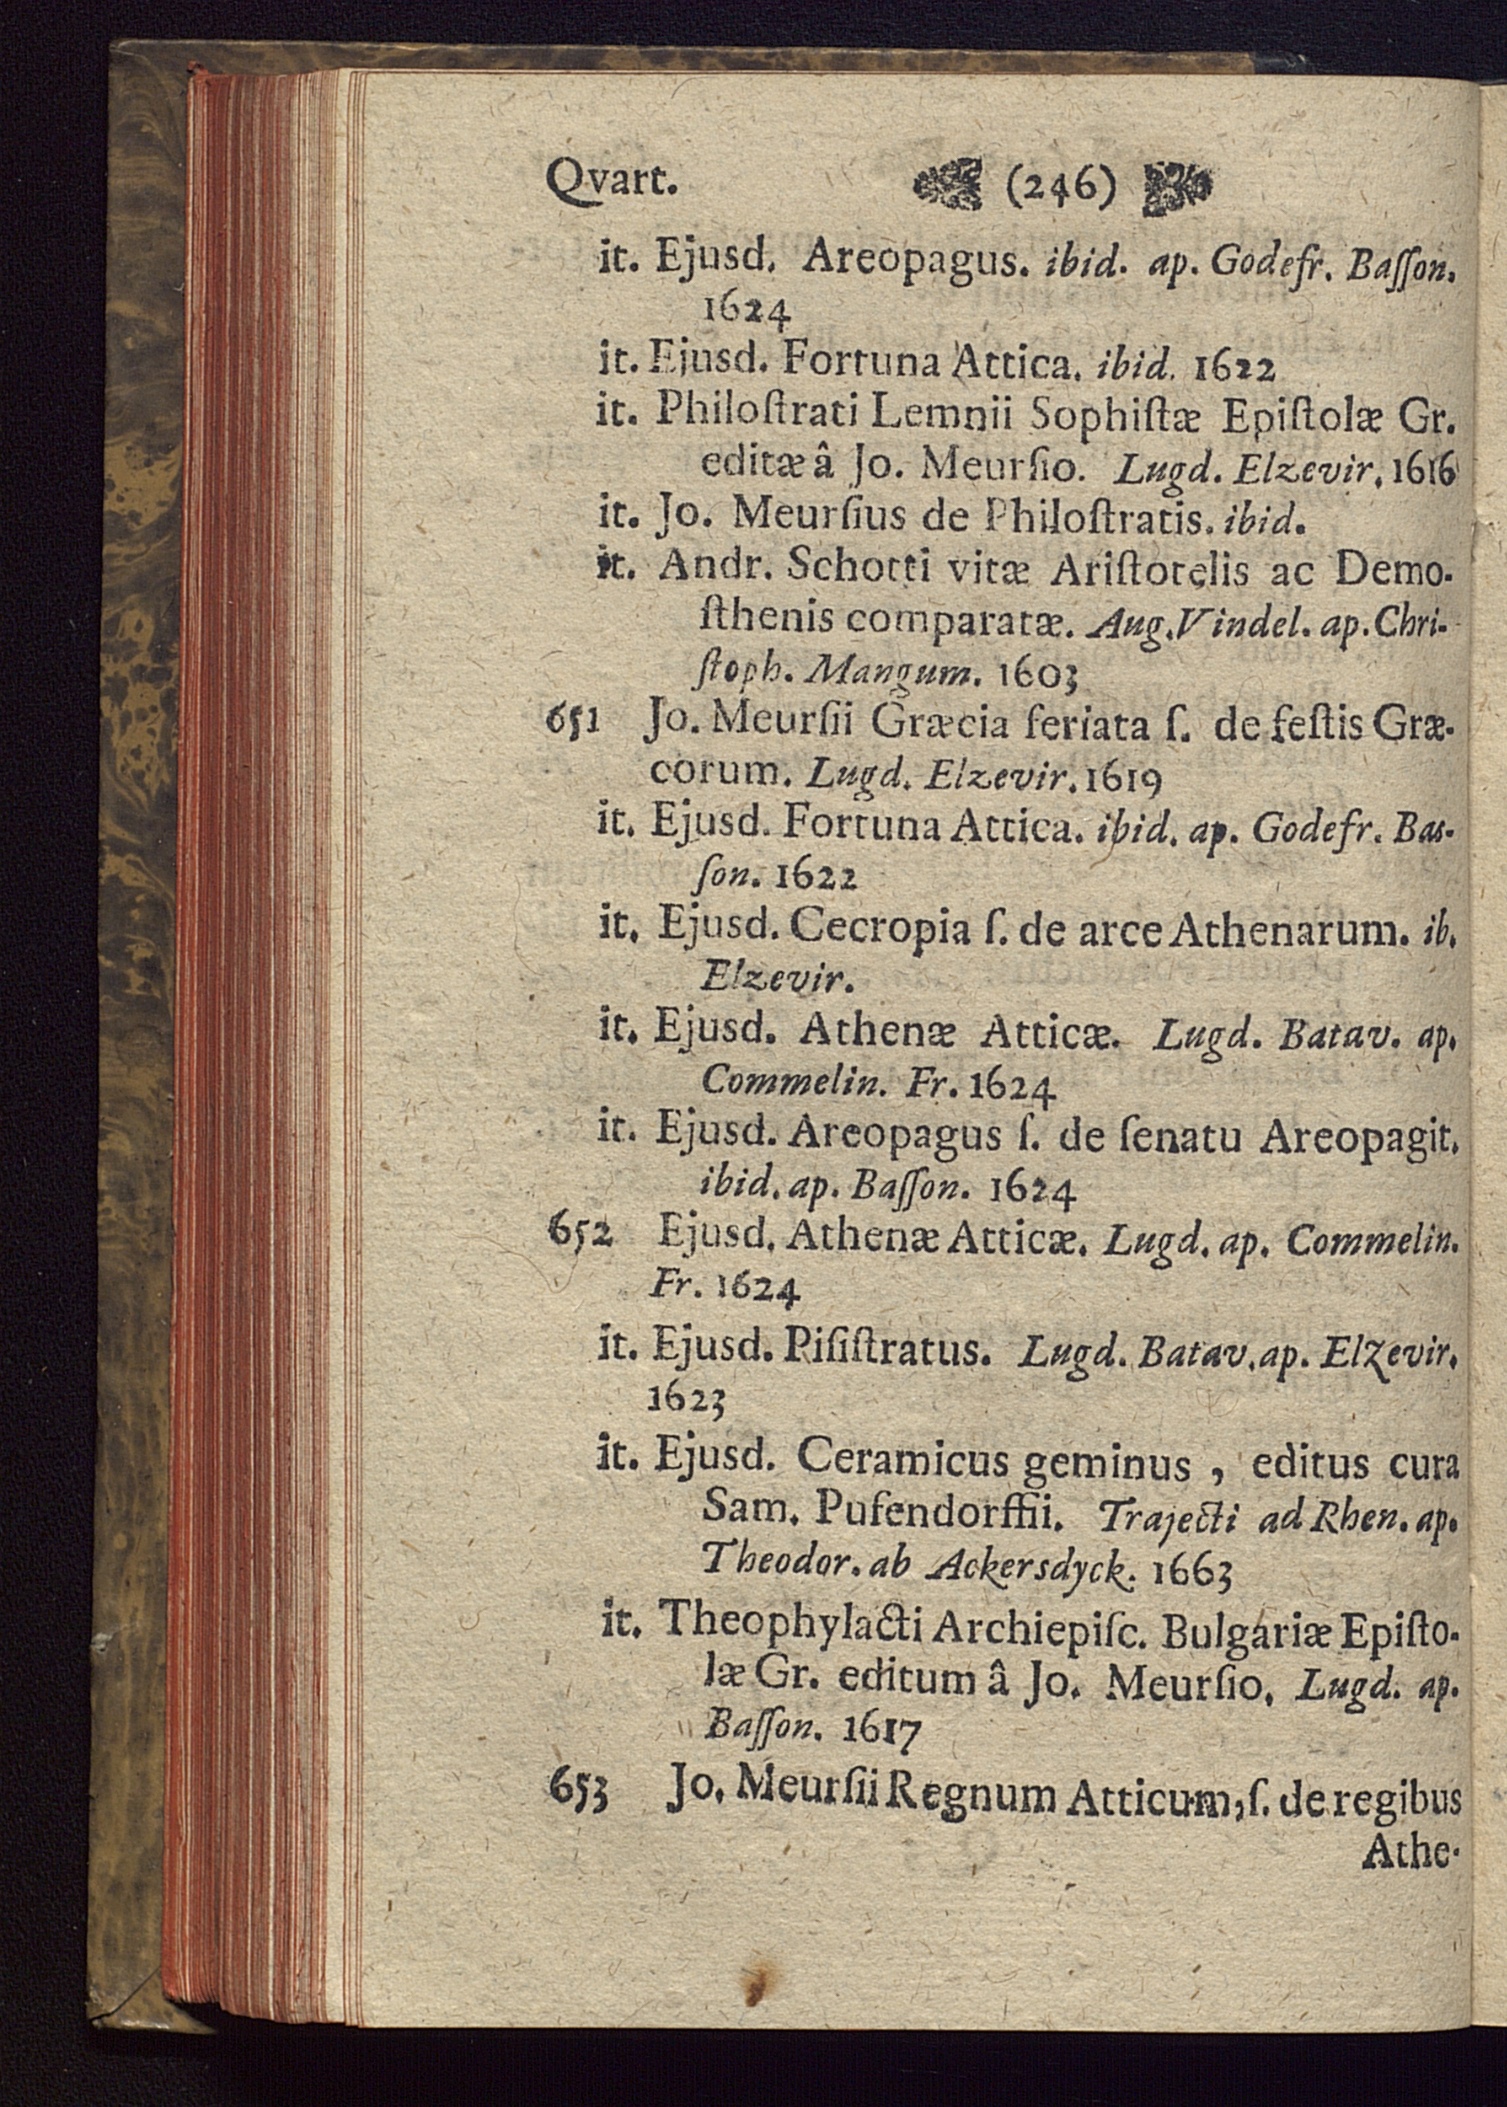 Qvart. (246)
it. Ejusd. Areopagus. ibid. ap. Godefr. Baſſon.
1624
it. Ejusd. Fortuna Attica. ibid. 1622
it. Philoſtrati Lemnii Sophiſtæ Epiſtolæ Gr.
editæ â Jo. Meurſio. Lugd. Elzevir. 1616
it. Jo. Meurſius de Philoſtratis. ibid.
it. Andr. Schotti vitæ Ariſtotelis ac Demo-
ſthenis comparatæ. Aug. Vindel. ap. Chri-
ſtoph. Mangum. 1603
651 Jo. Meurſii Græcia feriata ſ. de feſtis Græ-
corum. Lugd. Elzevir. 1619
it. Ejusd. Fortuna Attica. ibid. ap. Godefr. Bas-
ſon. 1622
it. Ejusd. Cecropia ſ. de arce Athenarum. ib.
Elzevir.
it. Ejusd. Athenæ Atticæ. Lugd. Batav. ap.
Commelin. Fr. 1624
it. Ejusd. Areopagus ſ. de ſenatu Areopagit.
ibid. ap. Baſſon. 1624
652 Ejusd. Athenæ Atticæ. Lugd. ap. Commelin.
Fr. 1624
it. Ejusd. Piſiſtratus. Lugd. Batav. ap. Elzevir.
1623
it. Ejusd. Ceramicus geminus, editus cura
Sam. Pufendorffii. Trajecti ad Rhen. ap.
Theodor. ab Ackersdyck. 1663
it. Theophylacti Archiepiſc. Bulgariæ Epiſto-
læ Gr. editum â Jo. Meurſio. Lugd. ap.
Baſſon. 1617
653 Jo. Meurſii Regnum Atticum, ſ. de regibus
Athe-